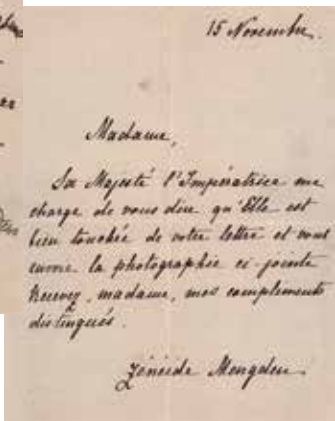 15 Novembre.
Madame,
Sa Majesté l'Impératrice me
charge de vous dire qu'Elle est
bien touchée de votre lettre et vous
envoie la photographie ci-jointe
Recevez, madame, mes compliments
distingués.
Zénéide Mengden.